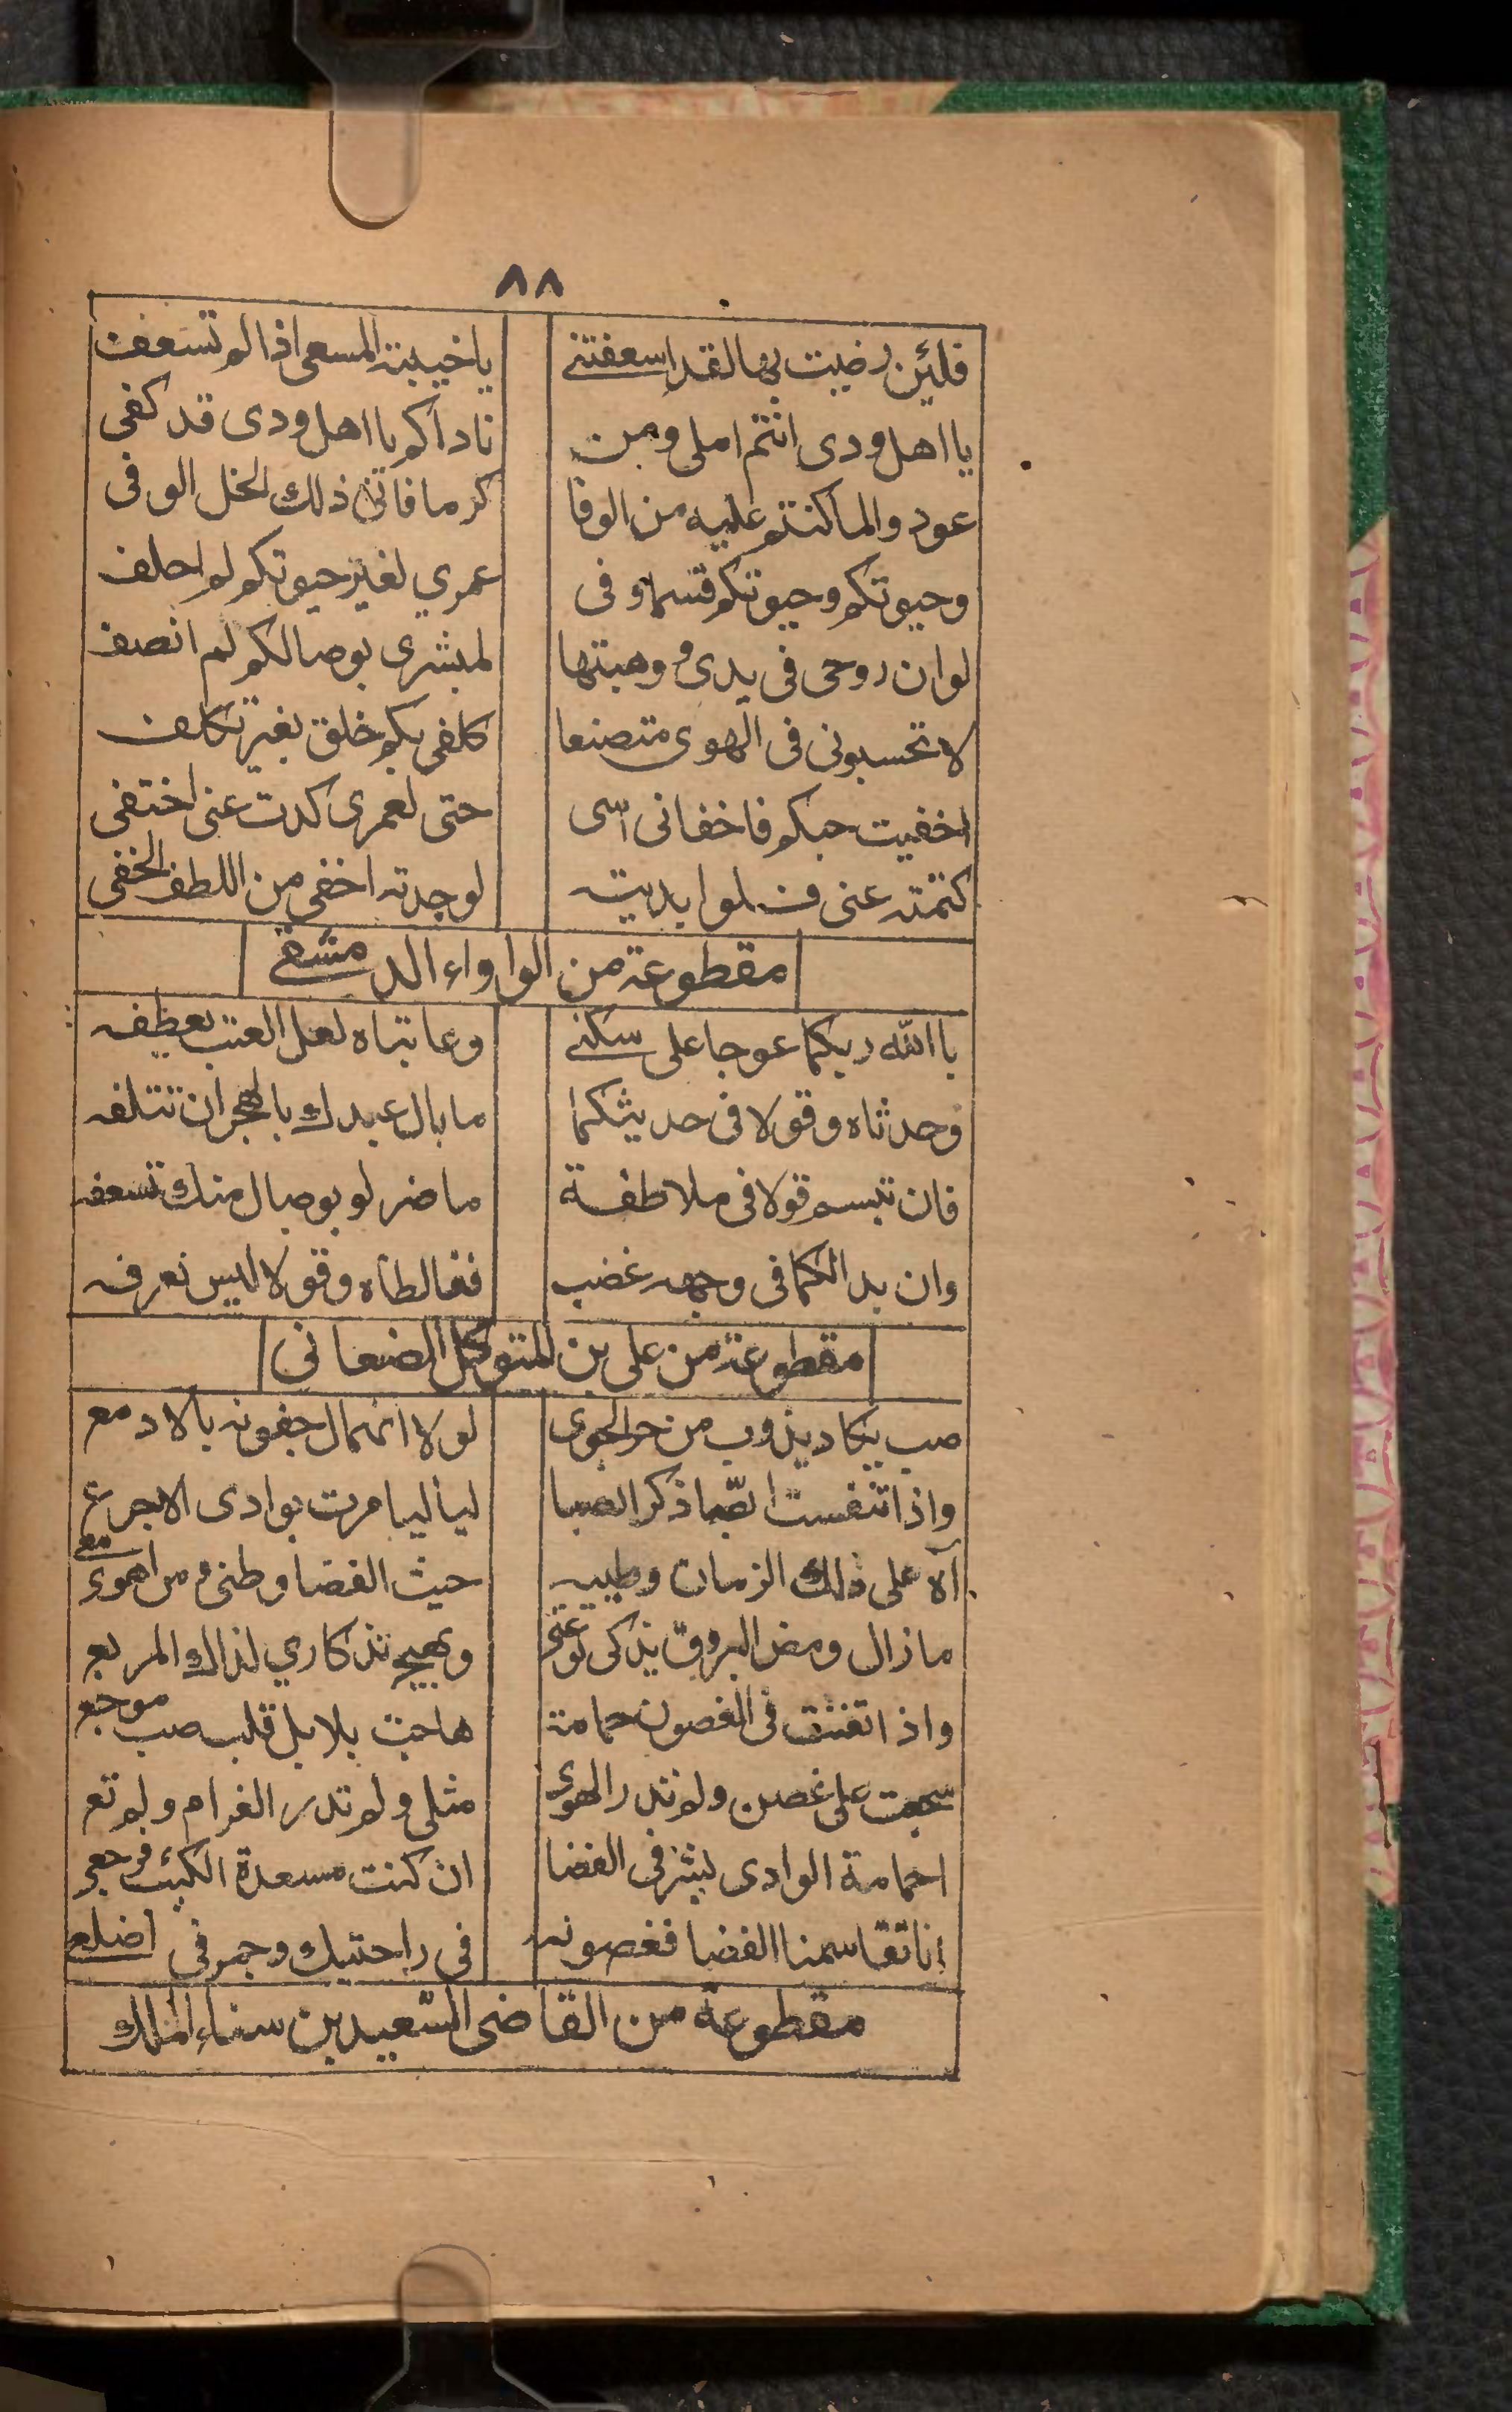 ٨٨
فلئن رضيت بها لقد اسعفتني ياخيبة المسعى اذا لم تسعف
يا اهل ودى انتم املى ومن ناداكم يا اهل ودى قد كفى
عودوا لما كنتم عليه من الوفا كرما فانى ذلك الخل الوفى
وحيوتكم وحيوتكم قسما وفى عمري لغير حيوتكم لم احلف
لو ان روحى فى يدى و وهبتها لمبشرى بوصالكم لم انصف
لا تحسبونى فى الهوى متصنعا كلفى بكم خلق بغير تكلف
اخفيت حبكم فاخفانى اسى حتى لعمرى كدت عنى اختفى
كتمته عنى فلو ابديته لوجدته اخفى من اللطف الخفى
مقطوعة من الواواء الدمشقي
با الله ربكما عوجا على سكني وعاتباه لعل العتب يعطفه
وحدثاه وقولا فى حديثكما ما بال عبدك بالهجران تتلفه
فان تبسم قولا فى ملاطفة ما ضر لو بوصال منك تسعفه
وان بدا لكما فى وجهه غضب فغالطاه وقولا ليس نعرفه
مقطوعة من على بن المتوكل الضعانى
صب يكاد يذوب من حر الجوى لولا انهمال جفونه بالادمع
واذا تنفست الصبا ذكر الصبا لياليا مرت بوادى الاجرع
آه على ذلك الزمان وطيبه حيث الغضا وطنى و من اهوى معي
ما زال ومض البروق يذكى لوعتى ويهيج تذكاري لذاك المربع
واذا تغنت فى الغصون حمامة هاجت بلابل قلب صب موجع
سجعت على غصن ولم تدر الهوى مثلى ولم تدر الغرام ولم تع
احمامة الوادى بشرقى الغضا ان كنت مسعدة الكئيب فرجعى
انا تقاسمنا الغضا فغصونه فى راحتيك وجمره فى اضلعى
مقطوعة من القاضى السعيد بن سناء الملك